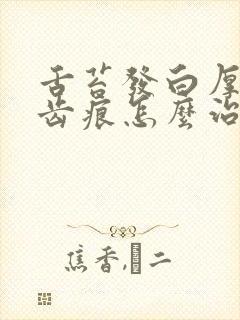 舌苔發白厚
齿痕怎麼治
焦香,�二